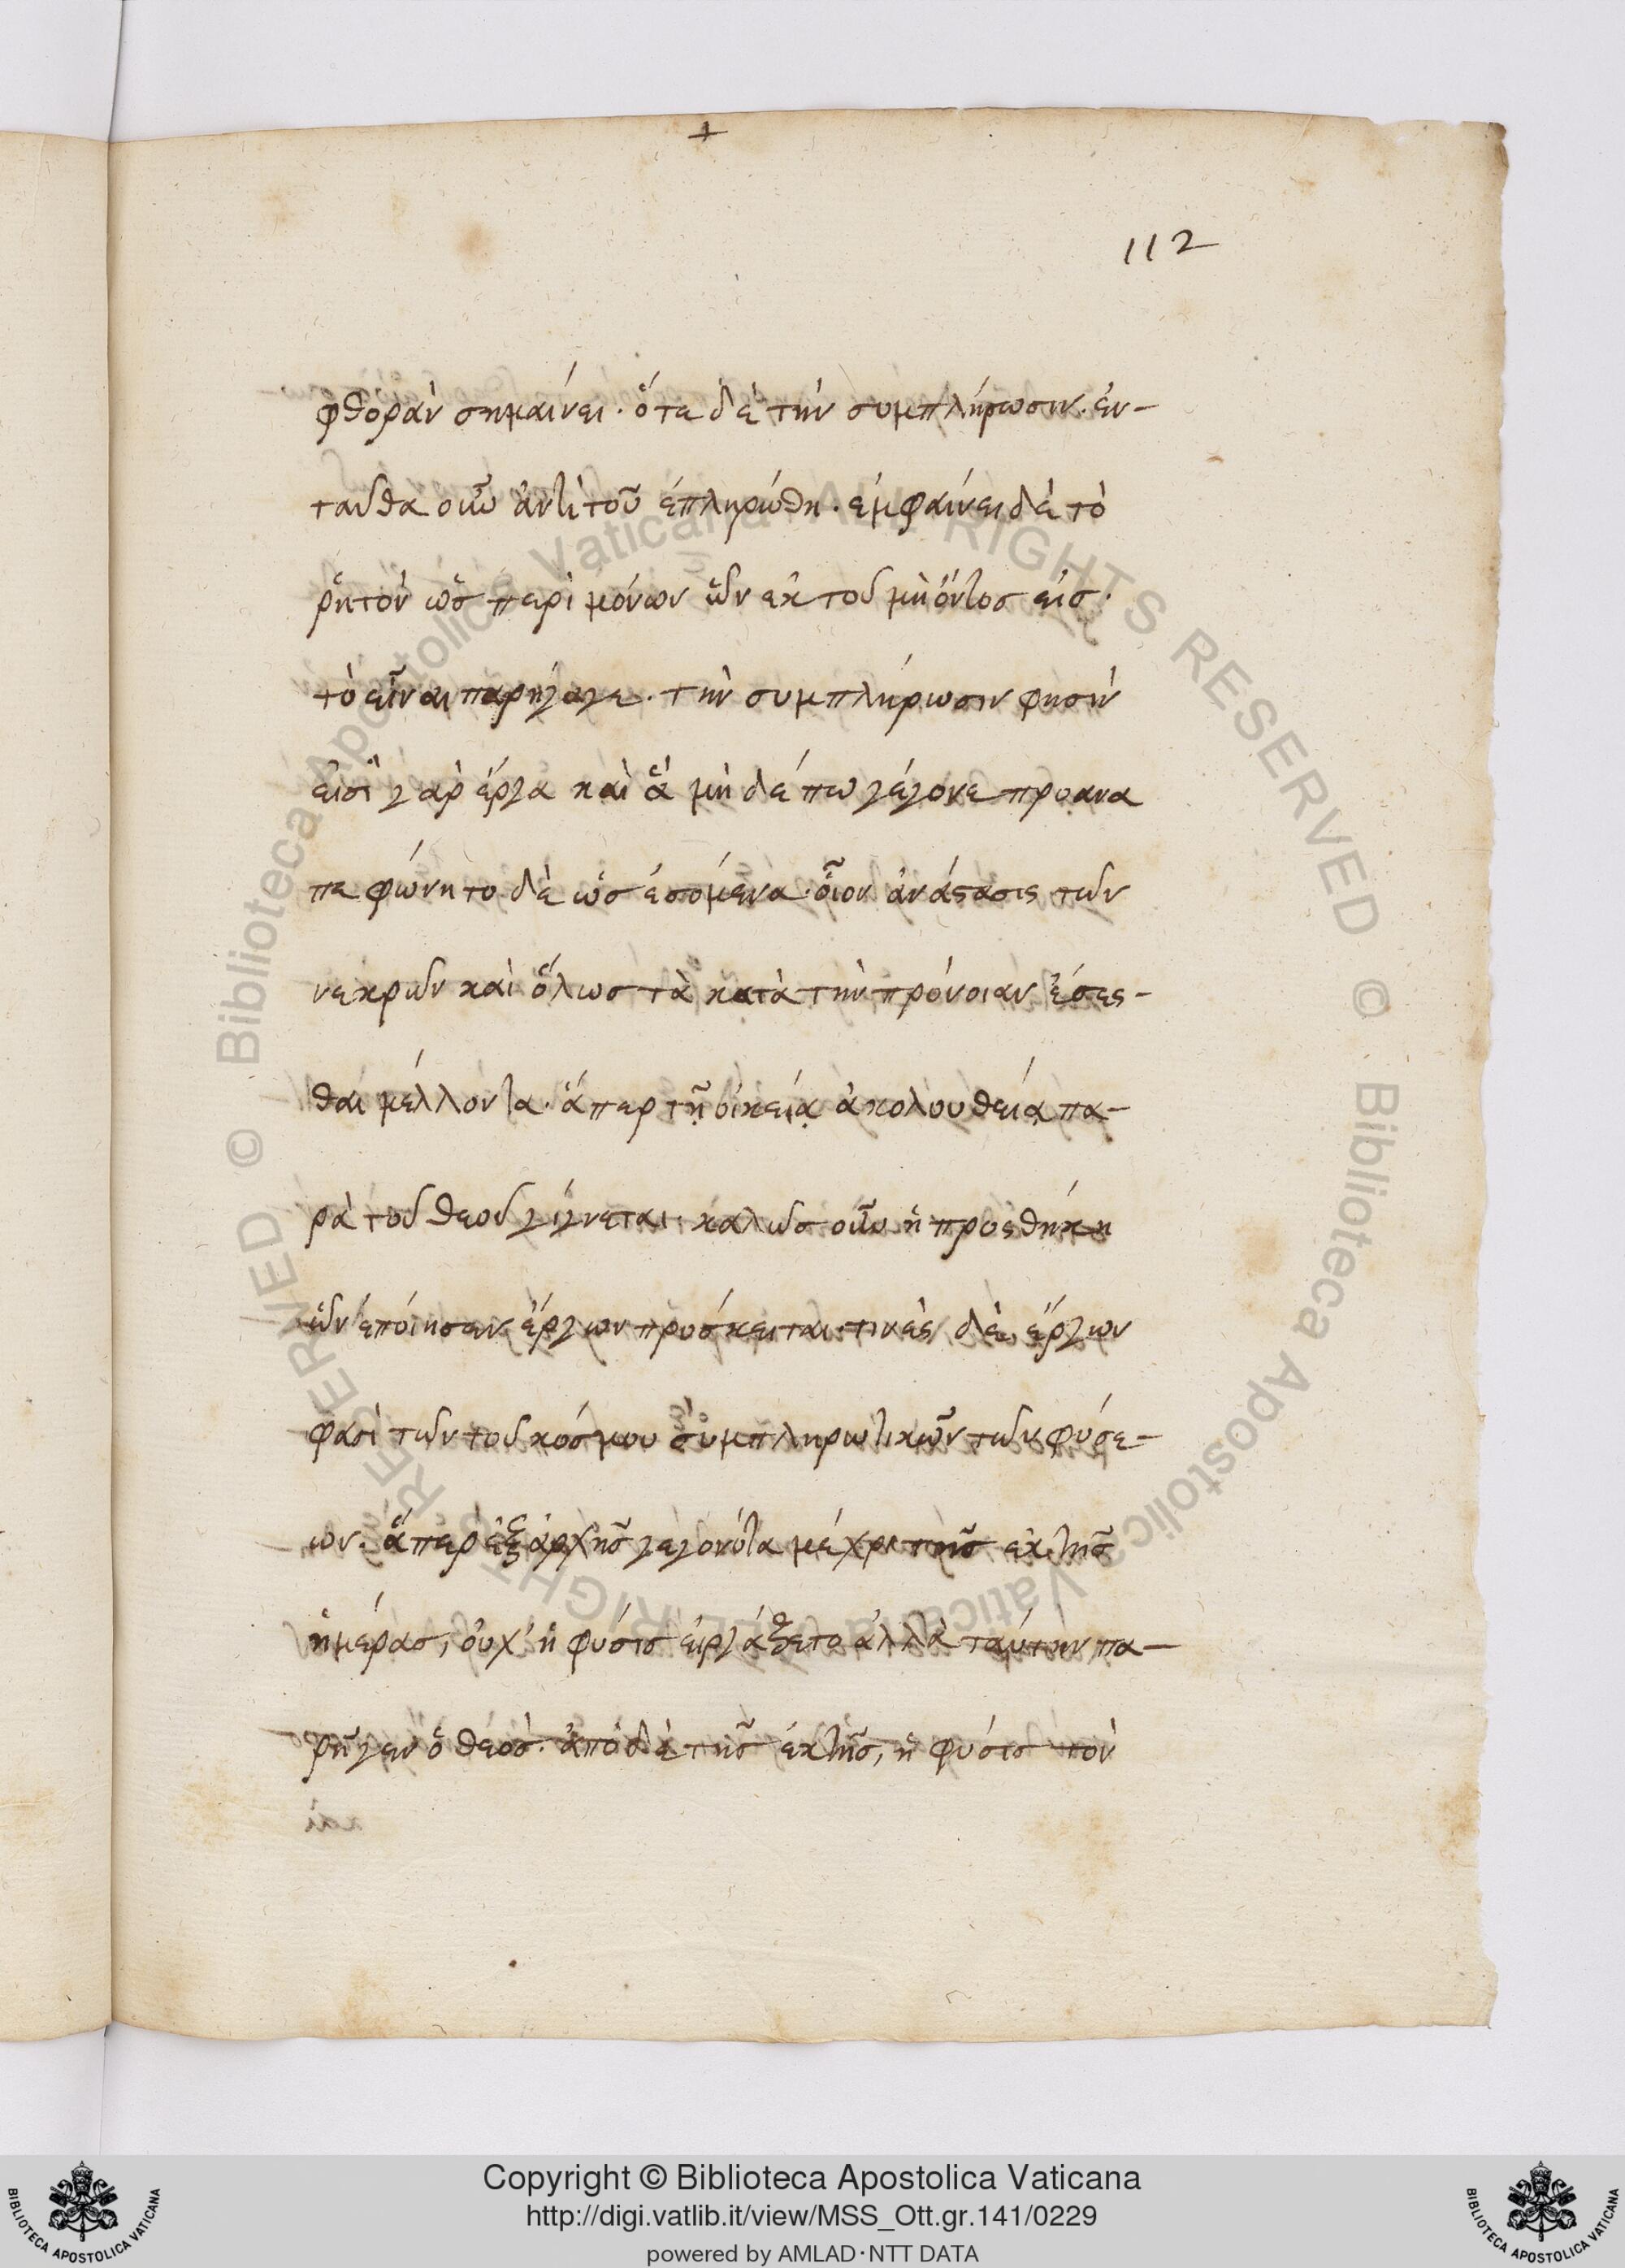 +
112
φθορὰν σημαίνει· ὅτε δὲ τὴν συμπλήρωσιν· ἐν-
ταῦθα οὖν ἀντὶ τοῦ ἐπληρώθη· ἐμφαίνει δὲ τὸ
ῥητὸν ὡς περὶ μόνων ὧν ἐκ τοῦ μὴ ὄντος εἰς·
τὸ εἶναι παρήγαγε· τὴν συμπλήρωσιν φησὶν
εἰσὶ γὰρ ἔργα καὶ ἃ μὴ δέ πω γέγονε προανα
πεφώνητο δὲ ὡς ἐσόμενα· οἷον ἀνάστασις τῶν
νεκρῶν καὶ ὅλως τὰ κατὰ τὴν πρόνοιαν ἔσεσ-
θαι μέλλοντα· ἅπερ τῇ οἰκείᾳ ἀκολουθείᾳ πα-
ρὰ τοῦ θεοῦ γίγνεται· καλῶς οὖν ἡ προσθήκη
ὧν ἐποίησεν ἔργων πρόσκειται· τινὲς δὲ ἔργων
φασὶ τῶν τοῦ κόσμου συμπληρωτικῶν τῶν φύσε-
ων· ἅπερ ἐξ ἀρχῆς γεγονότα μέχρι τῆς ἕκτης
ἡμέρας, οὐχ' ἡ φύσις εἰργάζετο ἀλλὰ ταύτην πα-
ρῆγεν ὁ θεός· ἀπὸ δὲ τῆς ἕκτης, ἡ φύσις τὸν
Copyright © Biblioteca Apostolica Vaticana
http://digi.vatlib.it/view/MSS_Ott.gr.141/0229
powered by AMLAD·NTT DATA
BIBLIOTECA APOSTOLICA VATICANA
BIBLIOTECA APOSTOLICA VATICANA
© Biblioteca Apostolica Vaticana ALL RIGHTS RESERVED
© Biblioteca Apostolica Vaticana ALL RIGHTS RESERVED